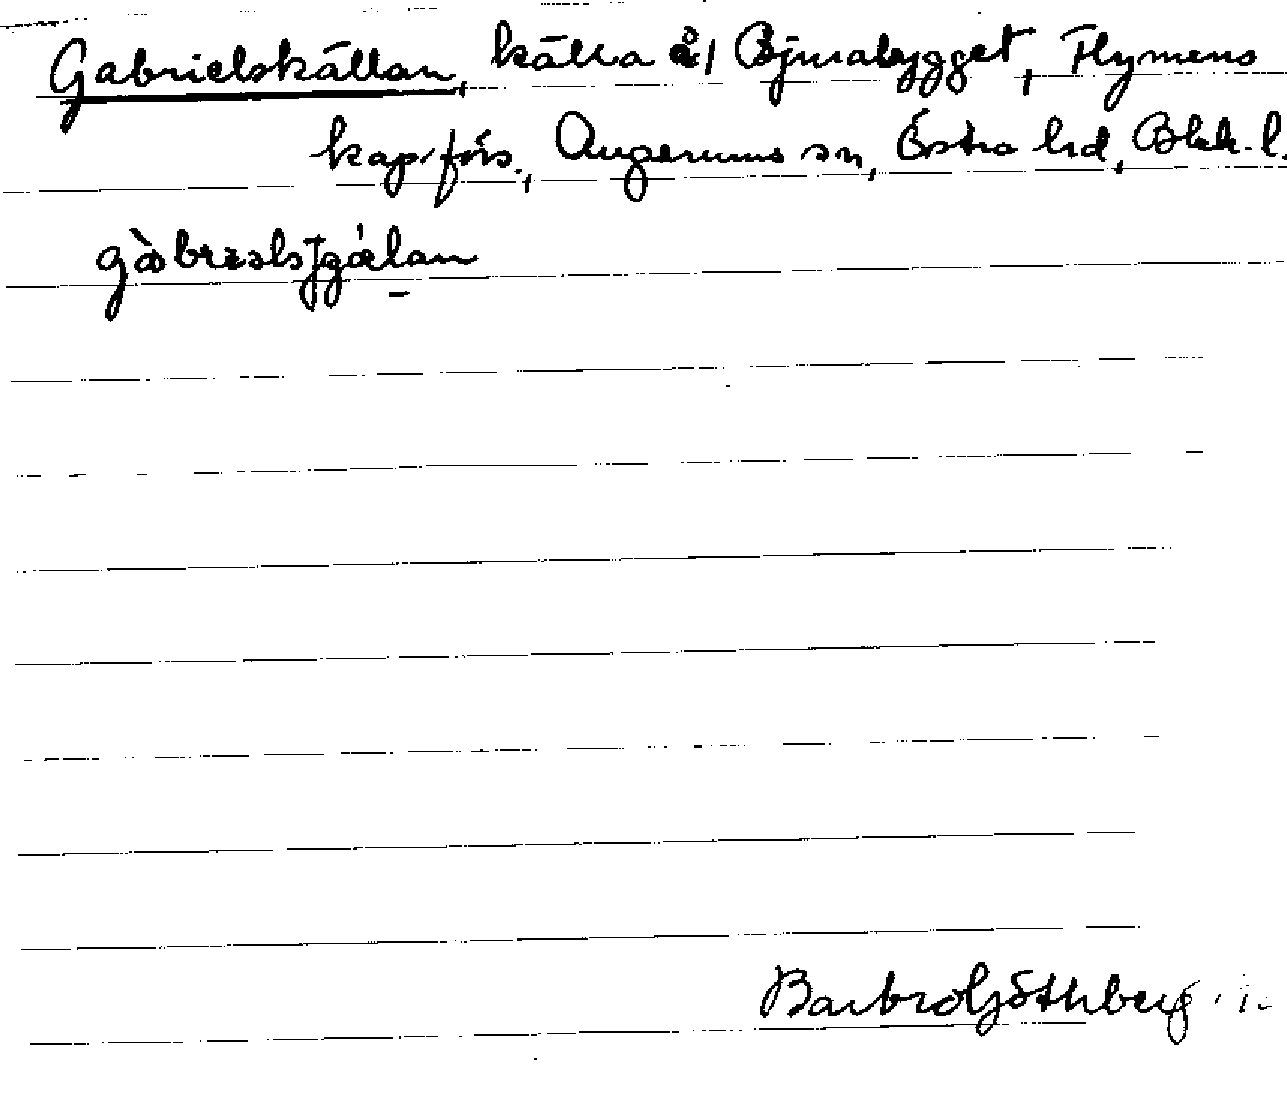 Gabrielskällan, källa å Bjurabygget, Flymens
kap.förs., Augerums sn, Östra hd, Blek. l.
Barbro Göthberg